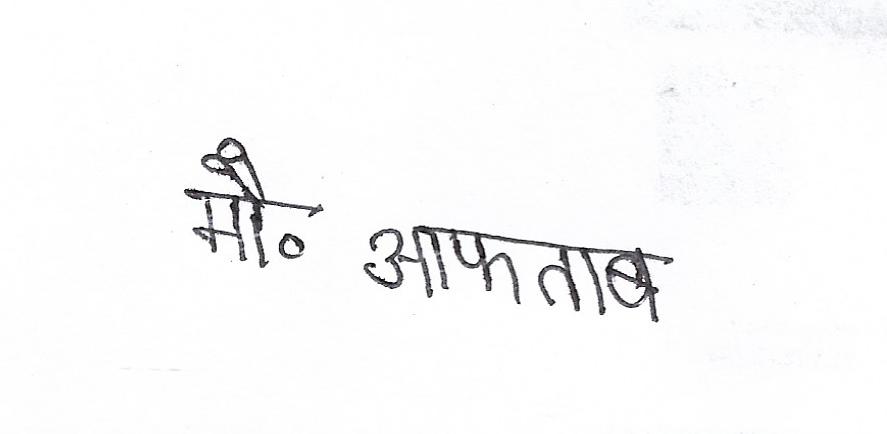 मौ० आफताब